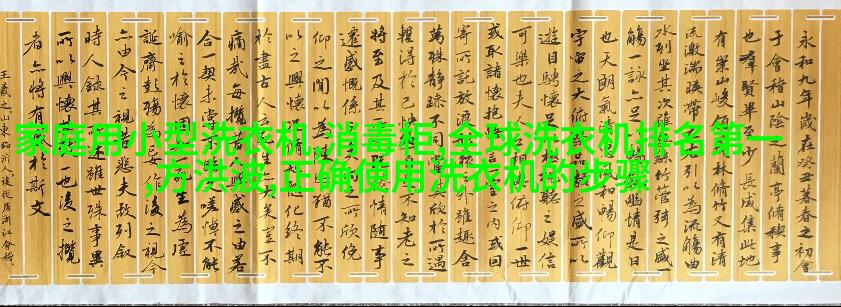 家庭用小型洗衣机,消毒柜,全球洗衣机排名第一
,方洪波,正确使用洗衣机的步骤
永和九年歲在癸丑暮春之初會
于會稽山陰之蘭亭脩稧事
也羣賢畢至少長咸集此地
有崇山峻領茂林脩竹又有清
流激湍暎帶左右引以為流觴曲
水列坐其次雖無絲竹管弦之盛一
觴一詠亦足以暢敘幽情是日
也天朗氣清惠風和暢仰觀
宇宙之大俯察品類之盛所以
遊目騁懷足以極視聽之娛信
可樂也夫人之相與俯仰一世
或取諸懷抱悟言一室之內或因
寄所託放浪形骸之外雖趣舍
萬殊靜躁不同當其欣於所遇
暫得於己快然自足不知老之
將至及其所之既惓情隨事
遷感慨係之矣向之所欣俛
仰之間以為陳迹猶不能不
以之興懷況脩短隨化終期
於盡古人云死生亦大矣豈不
痛哉每攬昔人興感之由若
合一契未嘗不臨文嗟悼不能
喻之於懷固知一死生為虛
誕齊彭殤為妄作後之視今
亦由今之視昔悲夫故列敘
時人錄其所述雖世殊事異
所以興懷其致一也後之攬
者亦將有感於斯文
王羲之山東臨沂人後徙居浙江會稽